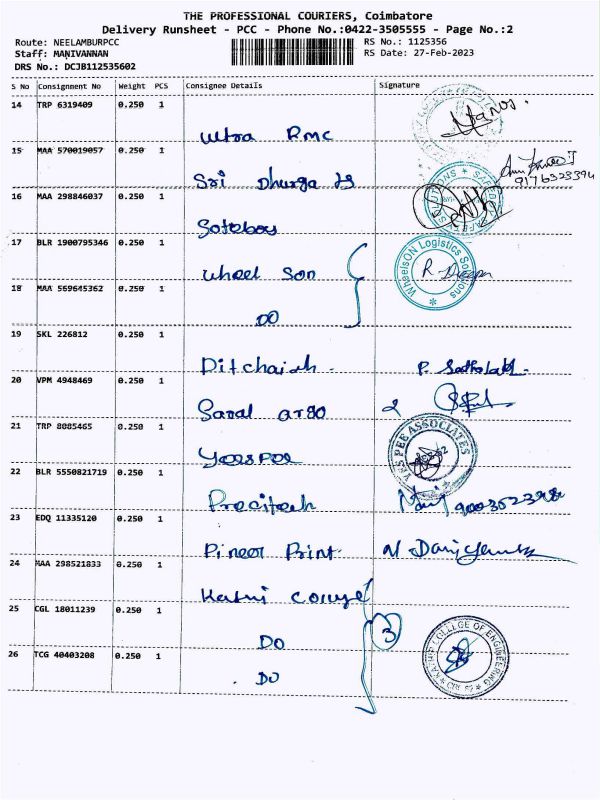 THE PROFESSIONAL COURIERS, Coimbatore
Delivery Runsheet - PCC - Phone No.:0422-3505555 - Page No.:2
Route: NEELAMBURPCC
RS No.: 1125356
Staff: MANIVANNAN
RS Date: 27-Feb-2023
DRS No.: DCJB112535602
S No Consignment No Weight PCS Consignee Details Signature
14 TRP 6319409 0.250 1
Ultra RMC
15 MAA 570019057 0.250 1
Sri Dhurga
9176323394
16 MAA 298846037 0.250 1
17 BLR 1900795346 0.250 1
Wheel Son
WheelsON Logistics Solutions
R. Deepa
18 MAA 569645362 0.250 1
DO
19 SKL 226812 0.250 1
Pitchaiah
20 VPM 4948469 0.250 1
Saral argo
21 TRP 8085465 0.250 1
YES PEE ASSOCIATES
22 BLR 5550821719 0.250 1
Precitech
23 EDQ 11335120 0.250 1
Pineer Print
24 MAA 298521833 0.250 1
Kathir college
25 CGL 18011239 0.250 1
DO
3
KATHIR COLLEGE OF ENGINEERING
26 TCG 40403208 0.250 1
DO